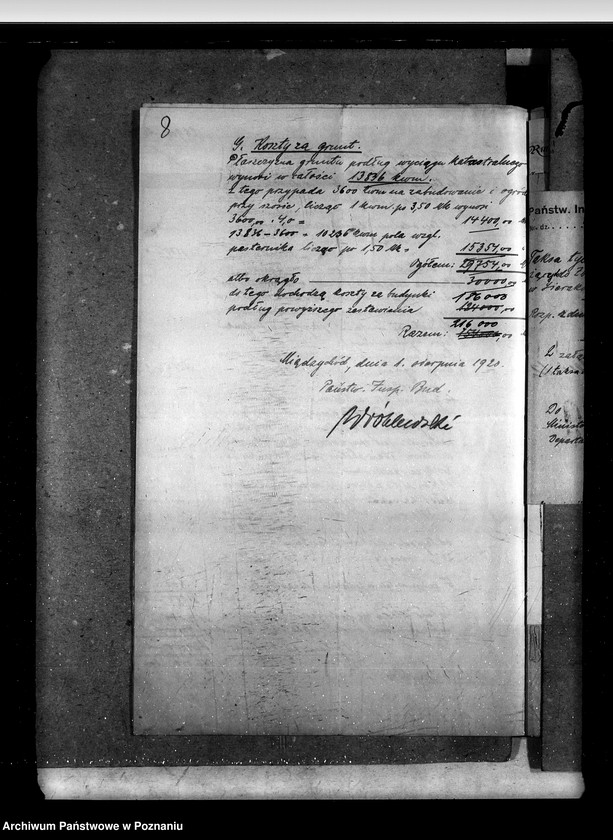 8
G. Koszty za grunt.
Płaszczyzna gruntu podług wyciągu katastralnego
wynosi w całości 13836 kwm.
Z tego przypada 3600 kwm na zabudowanie i ogród
przy szosie, licząc 1 kwm. po 3,50 Mk wynosi
3600,00 . 4,0 = 14400,00
13836 - 3600 = 10236 kwm pola wzgl.
pastwnika licząc po 1,50 Mk = 15354,00
Ogółem: 29754,00
albo okrągło 30000,00
do tego dochodzą koszty za budynki 186000
podług powyższego zestawienia 124000,00
216 000
Razem:
Międzychód, dnia 1. sierpnia 1920.
Państw. Insp. Bud.
Państw. In
Taksa
Rozp. z dn
Z zał
Do
Minist
Departa
Archiwum Państwowe w Poznaniu